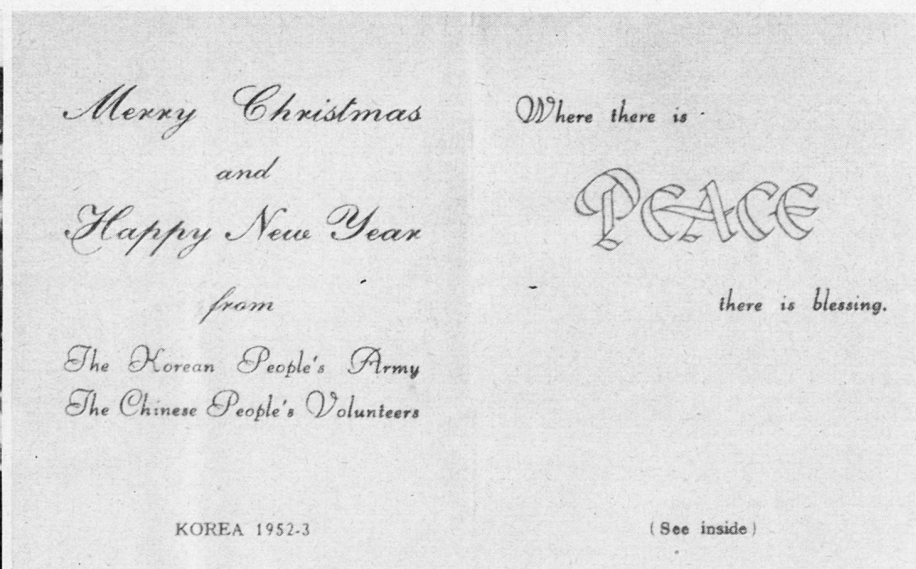 Merry Christmas
and
Happy New Year
from
The Korean People's Army
The Chinese People's Volunteers
KOREA 1952-3
Where there is
PEACE
there is blessing.
(See inside)